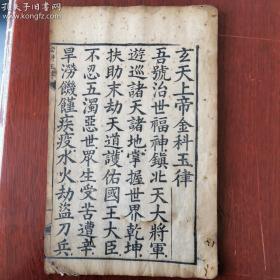 玄天上帝金科玉律
吾號治世福神鎮北天大將軍
遊巡諸天諸地掌握世界乾坤
扶助末劫天道護佑國王大臣
不忍五濁惡世眾生受苦遭辜
旱澇饑饉疾疫水火劫盜刀兵